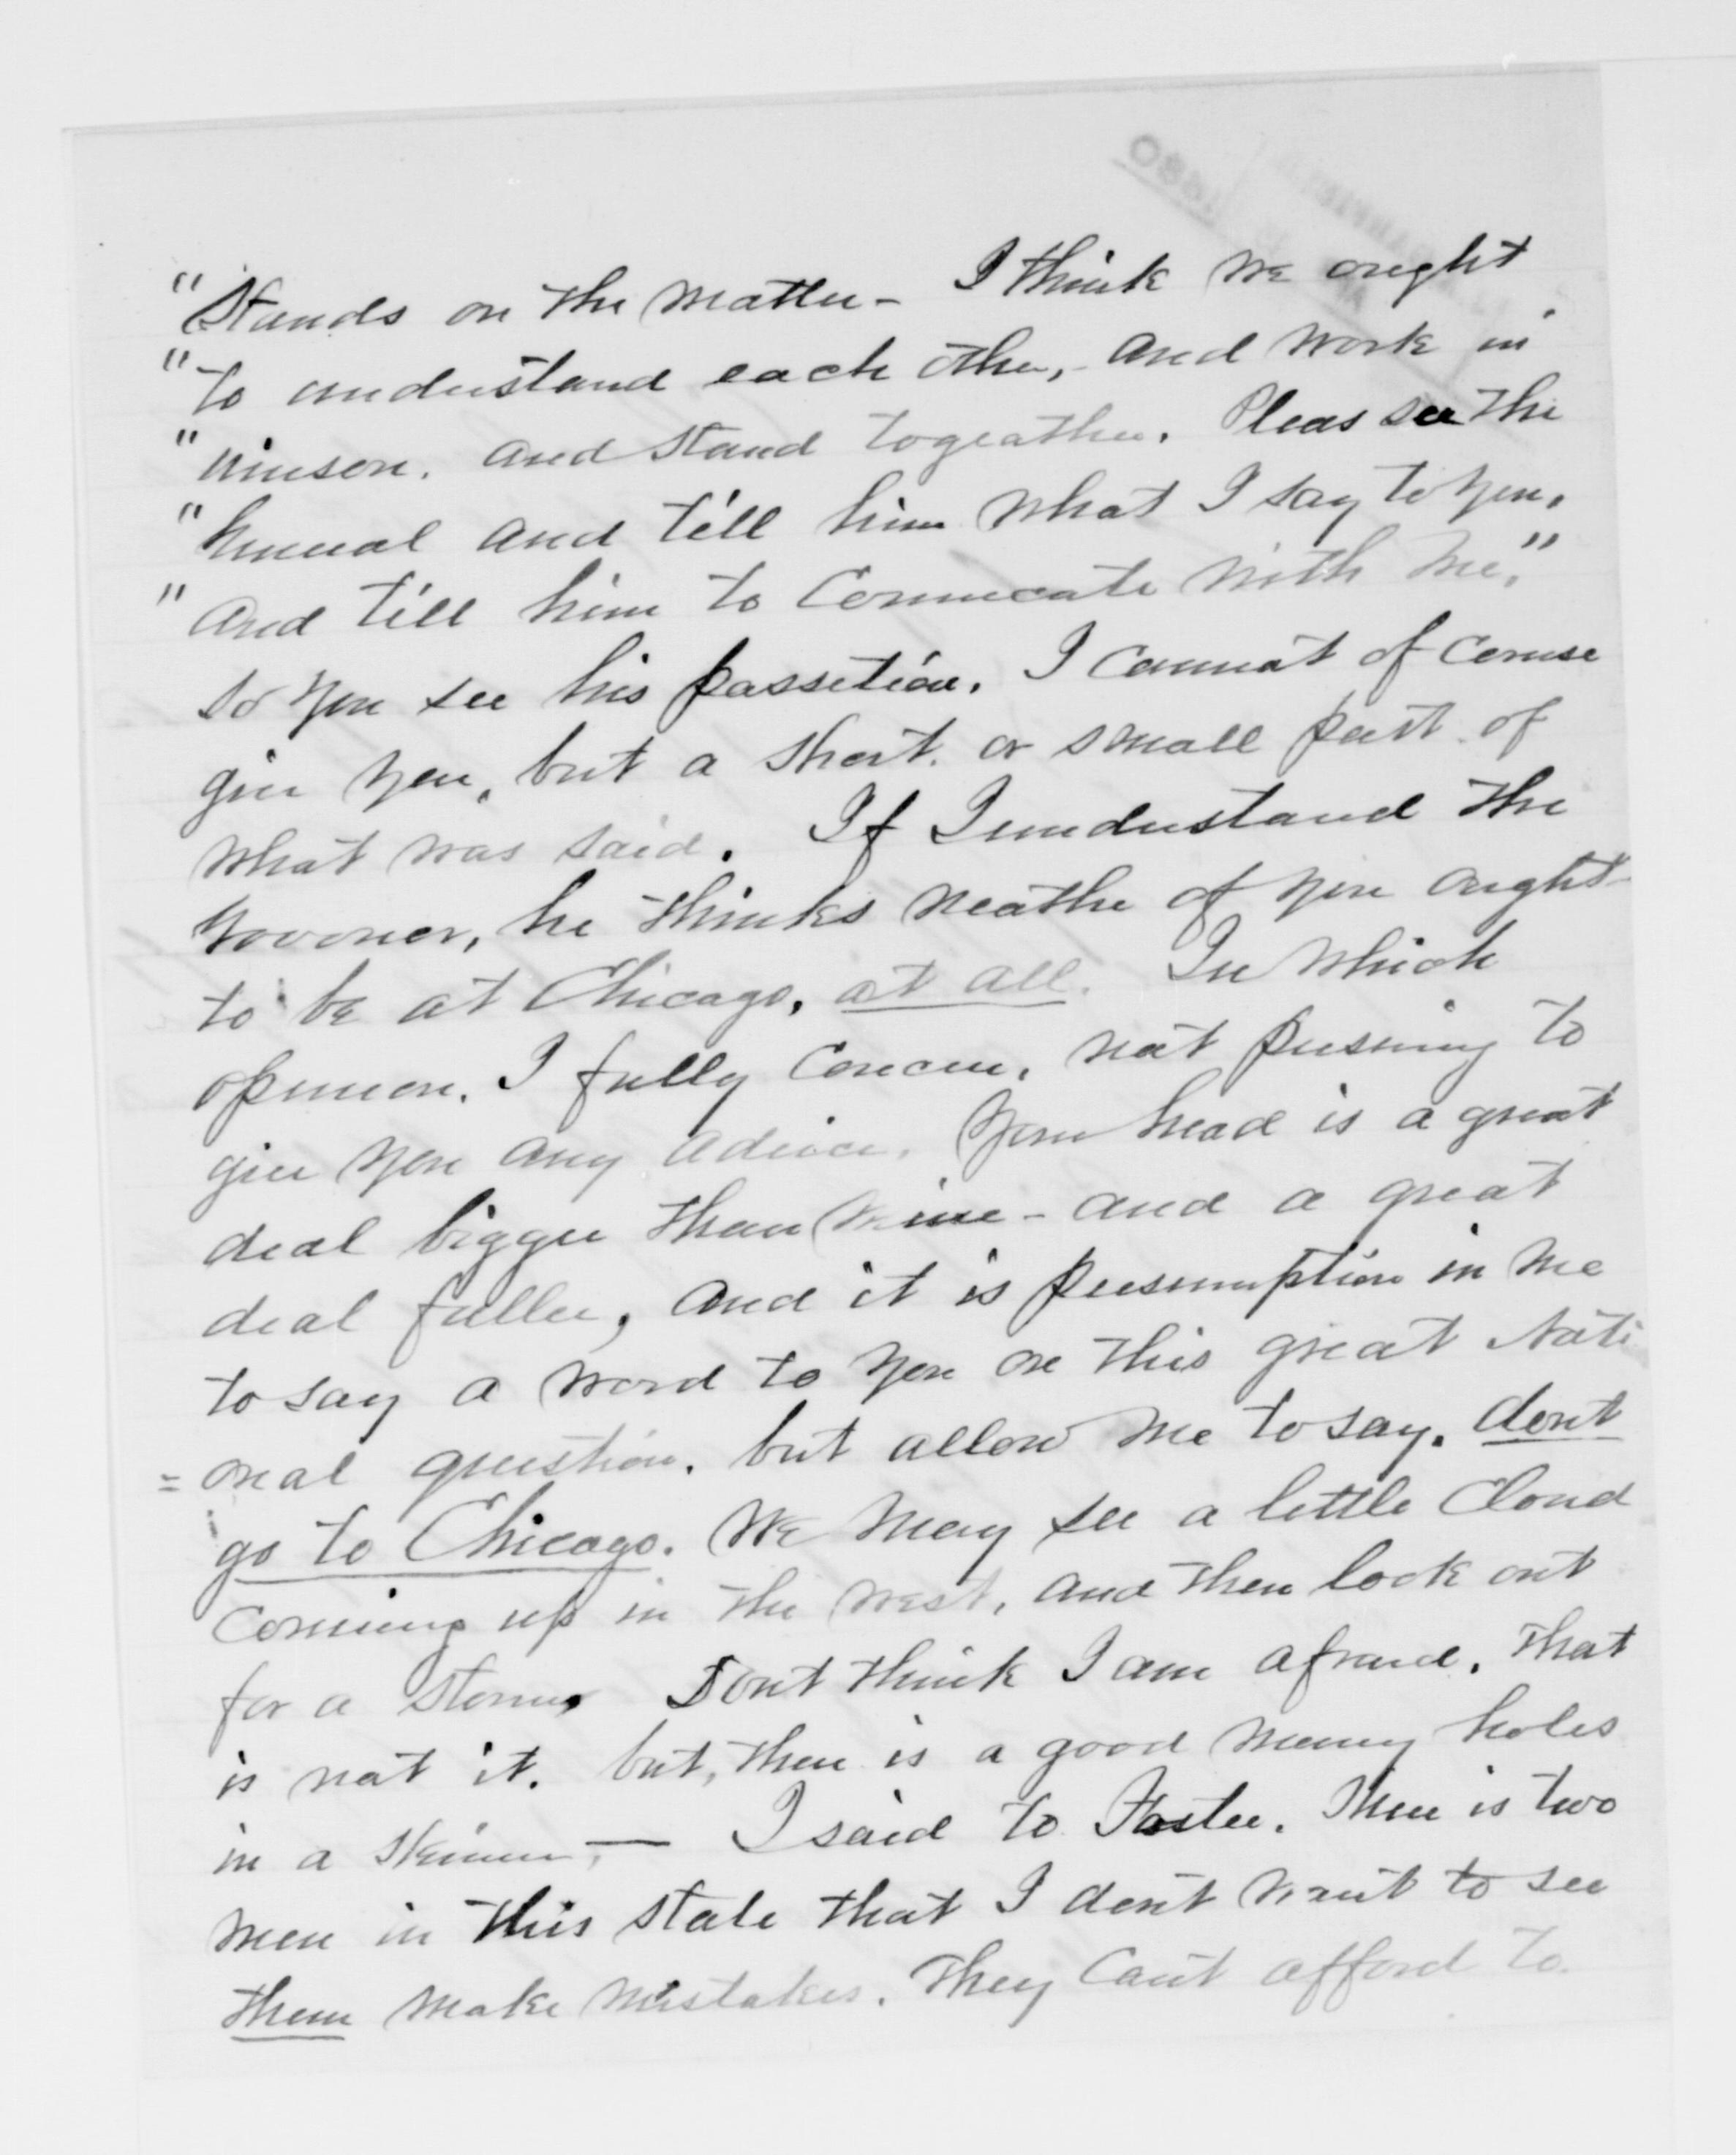 "Stands on the matter - I think we ought
"to understand each other, - and work in
"uinson. and stand togeather. Pleas see the
"Genneral and till him what I say to you,
"and till him to Comucate with me,"
so you see his possetion. I cannot of Couruse
give you, but a short. or small part of
what was said. If I understand the
Govoner, he thinks neather of you ought
to be at Chicago, at all. In which
opinion. I fully Concur, not presuming to
give you any advice. Your head is a great
deal bigger than mine - and a great
deal fuller, and it is presumption in me
to say a word to you on this great Nati
= onal question. but allow me to say. dont
go to Chicago. We may see a little Cloud
Comming up in the west, and then look out
for a storm. Dont think I am afraid. That
is not it. but, there is a good meny holes
in a skimer, — I said to Foster. There is two
men in this state that I dont want to see
them make mistakes. They Cant afford to
1880